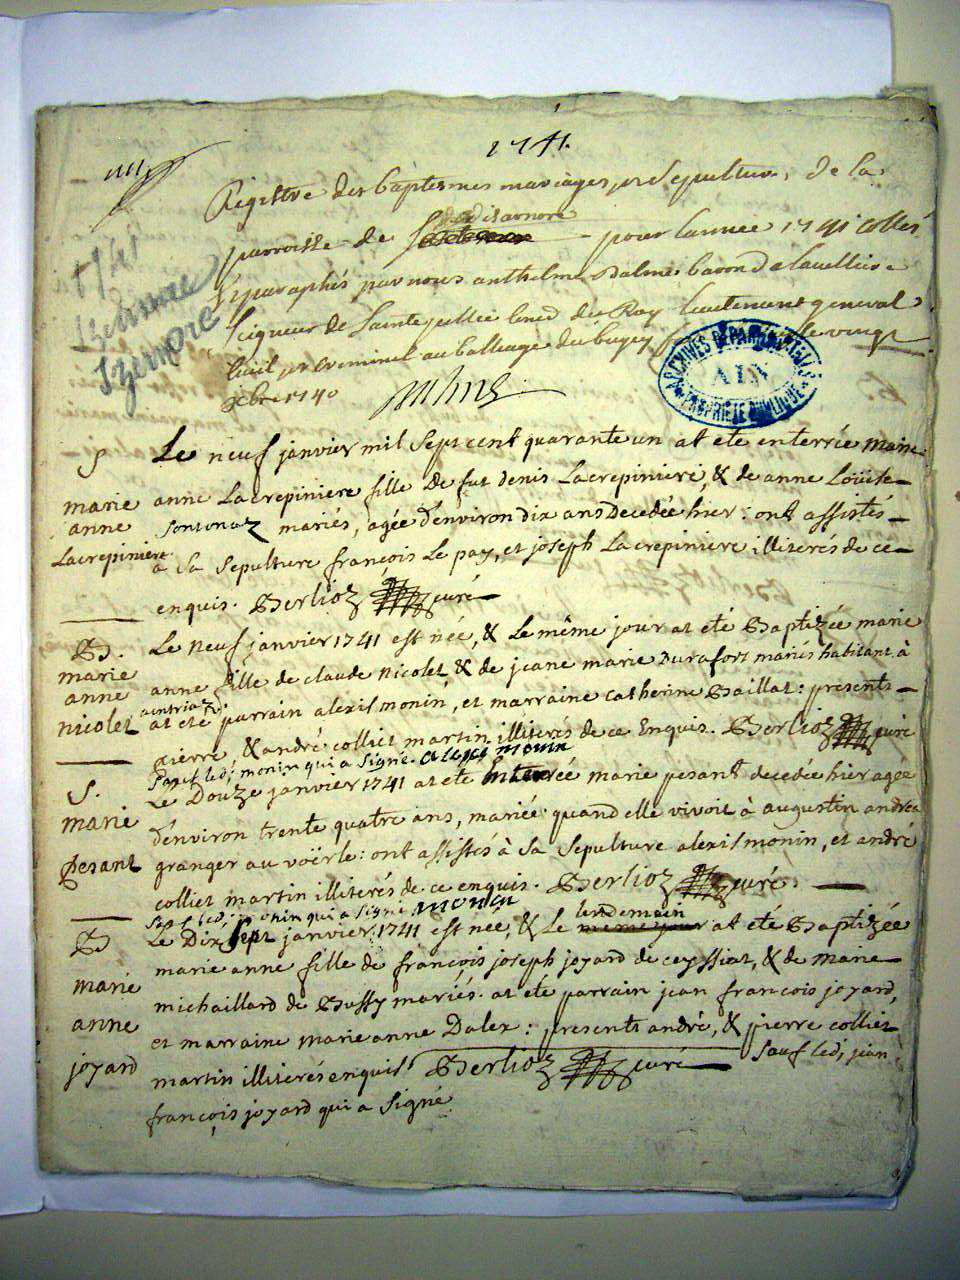 1741.
Registre des baptesmes mariages et sepulture, de la
parroisse de disarnore pour lannée 1741 cottés
et paraphés par nous anthelme Balme baron de
seigneur de Sainte jullie du Roy lieutenant general
civil et criminel au balliage du bugey le vingt
xbre 1740
1741
Izernore
ARCHIVES DÉPARTEMENTALES
AIN
PROPRIÉTÉ PUBLIQUE
S
marie
anne
Lacrepiniere
Le neuf janvier mil sept cent quarante un at eté enterrée marie
anne Lacrepiniere fille de fut denis Lacrepiniere, & de anne Loüise
sontonaz mariés, agée d'environ dix ans Decedée hier: ont assistés
a sa sepulture françois Le pay, et joseph Lacrepiniere illiterés de ce
enquis. Berlioz curé
B.
marie
anne
nicolet
Le neuf janvier 1741 est née, & Le même jour at eté Baptizée marie
anne fille de claude nicolet, & de jeane marie Durafort mariés habitant à
at eté parrain alexis monin, et marraine catherine Baillat: presents
pierre, & andré colliet martin illiterés de ce Enquis. Berlioz curé
Sauf led; monin qui a signé. alexis monin
S.
marie
pesant
Le Douze janvier 1741 at eté enterrée marie pesant decedée hier agée
d'environ trente quatre ans, mariée quand elle vivoit à augustin andréa
granger au voërle: ont assistés à sa sepulture alexis monin, et andré
colliet martin illiterés de ce enquis. Berlioz curé
Sauf led; monin qui a signé monin
B
marie
anne
joyard
Le Dix sept janvier 1741 est née, & Le même jour lendemain at eté Baptizée
marie anne fille de françois joseph joyard de ceyssiat, & de marie
michaillard de Bussy mariés. at eté parrain jean francois joyard,
et marraine marie anne Dalex: presents andré, & pierre colliet
martin illiterés enquis Berlioz curé Sauf led; jean
françois joyard qui a signé